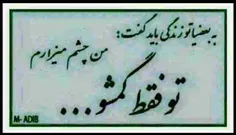 به بعضیا تو زندگی باید گفت:
من چشم میزارم
تو فقط گمشو...
M-ADIB